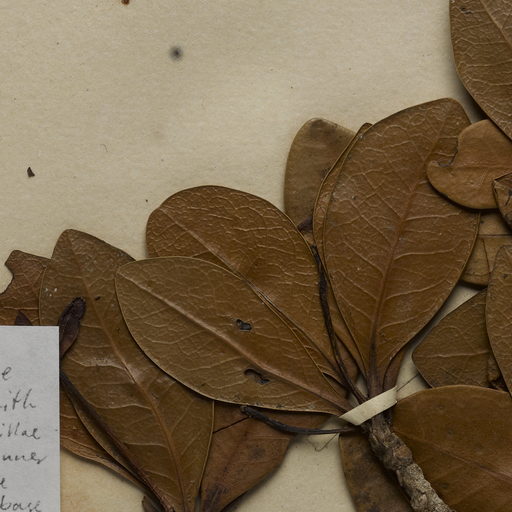 e
ith
illae
nner
e
base